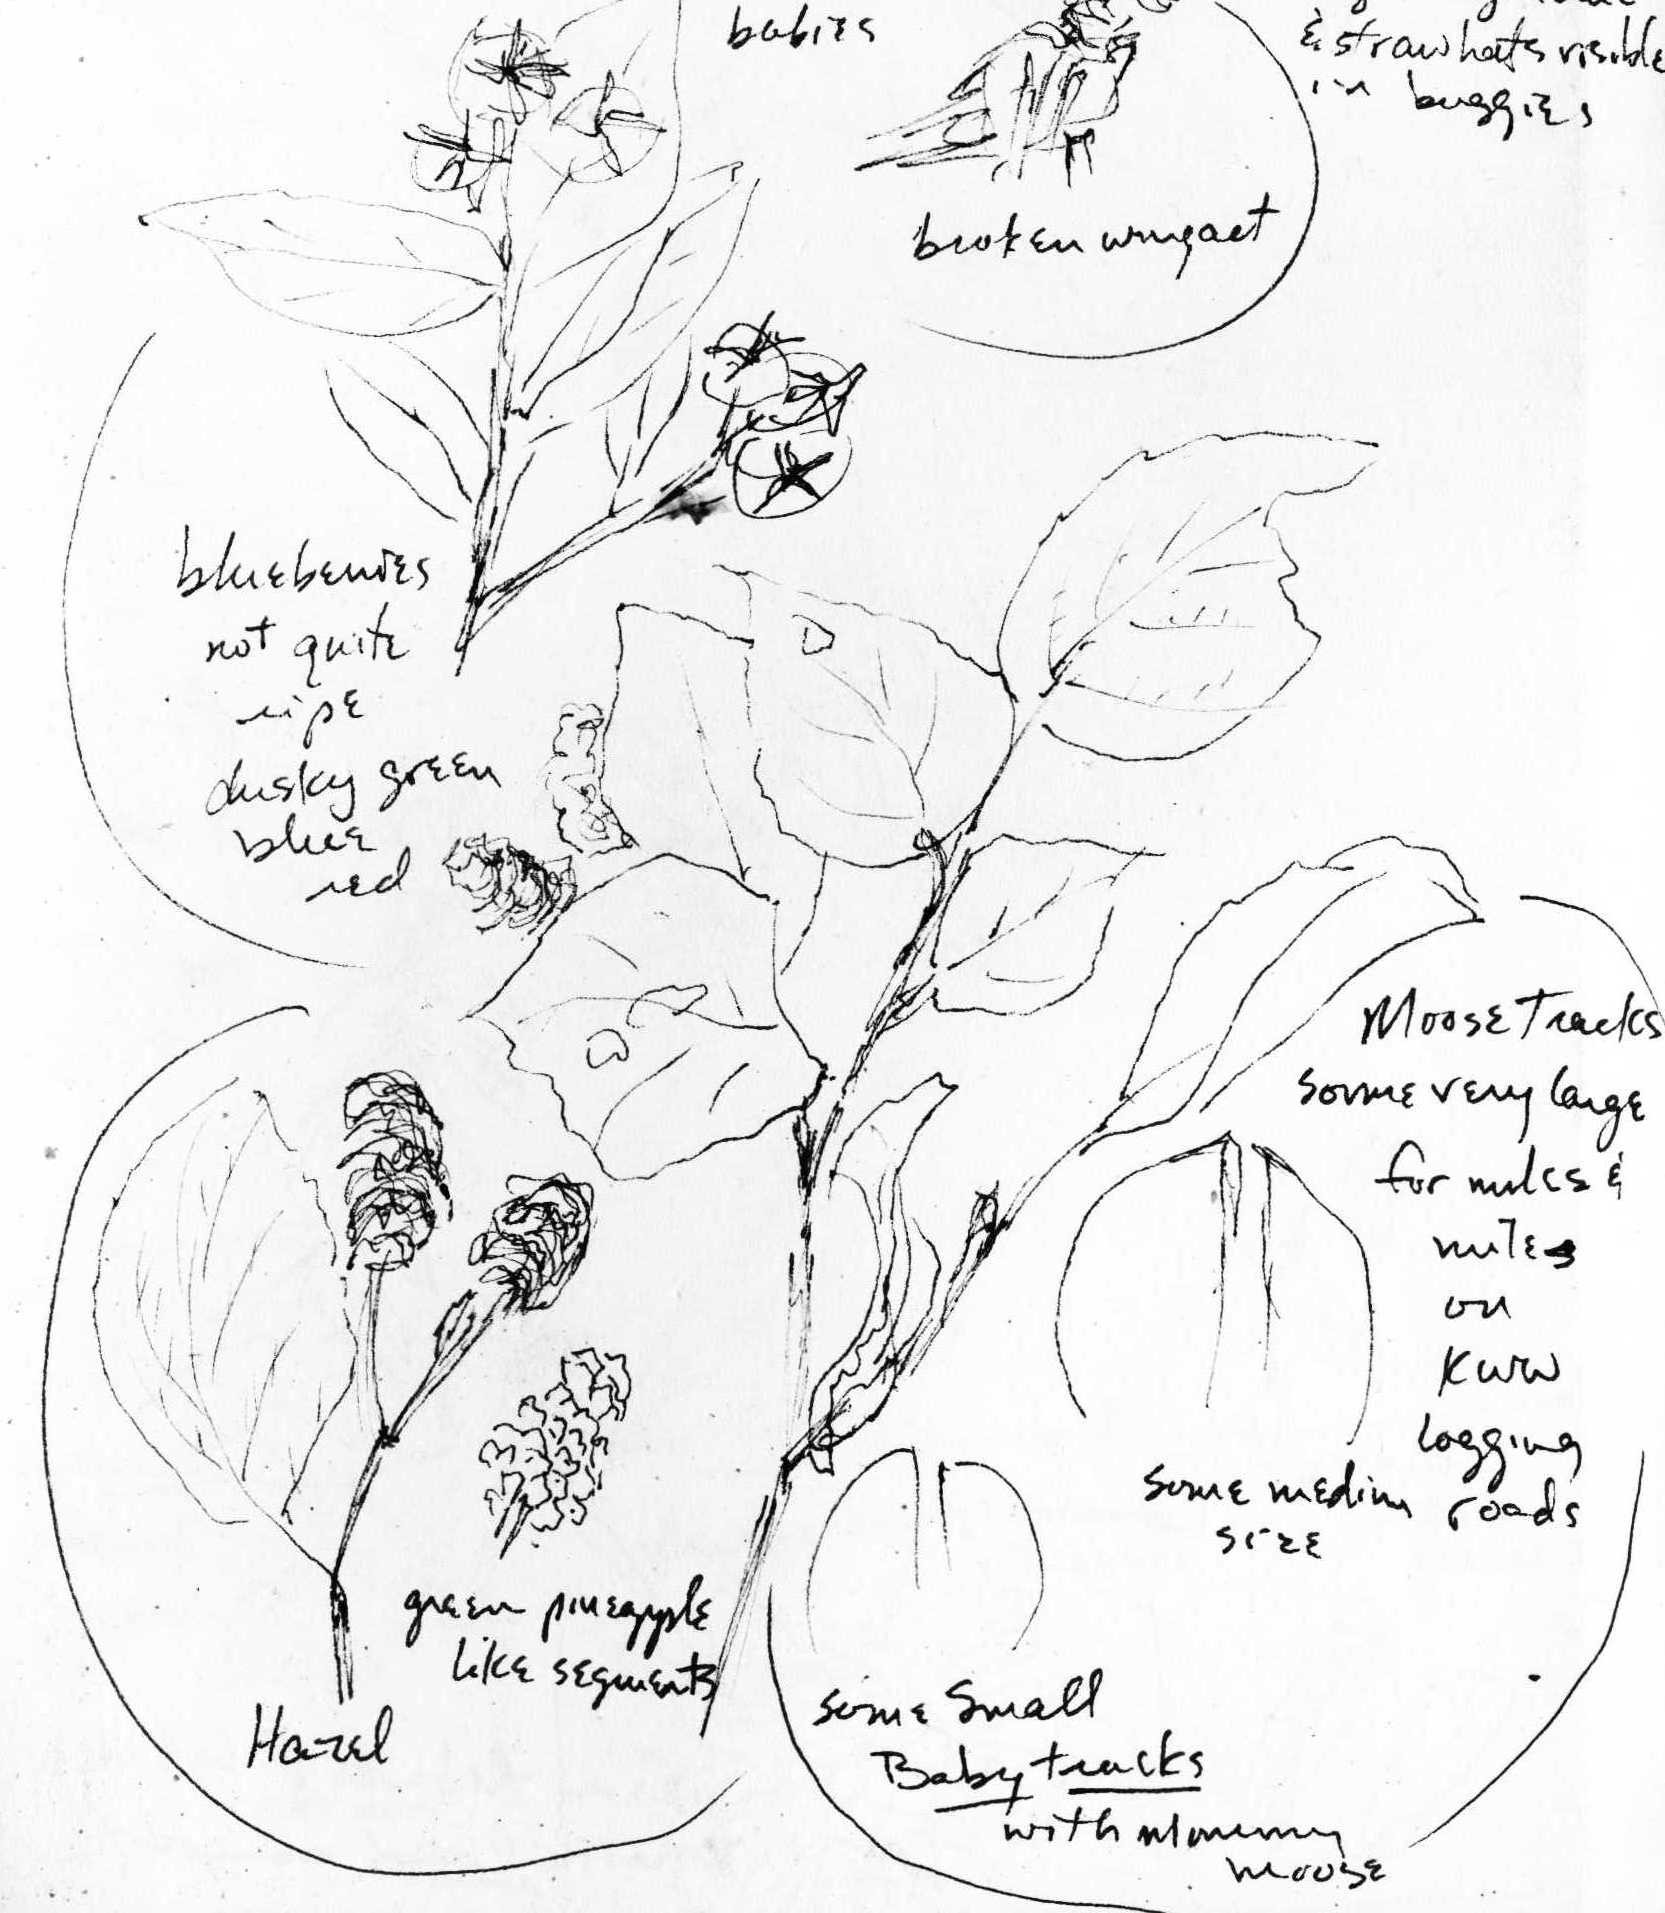 babies
& straw hats visible
in buggies
broken wing act
blueberries
not quite
ripe
dusky green
blue
red
Moose Tracks
some very large
for miles &
miles
on
KWW
logging
roads
some medium
size
green pineapple
like segments
Hazel
some small
Baby tracks
with Mommy
moose